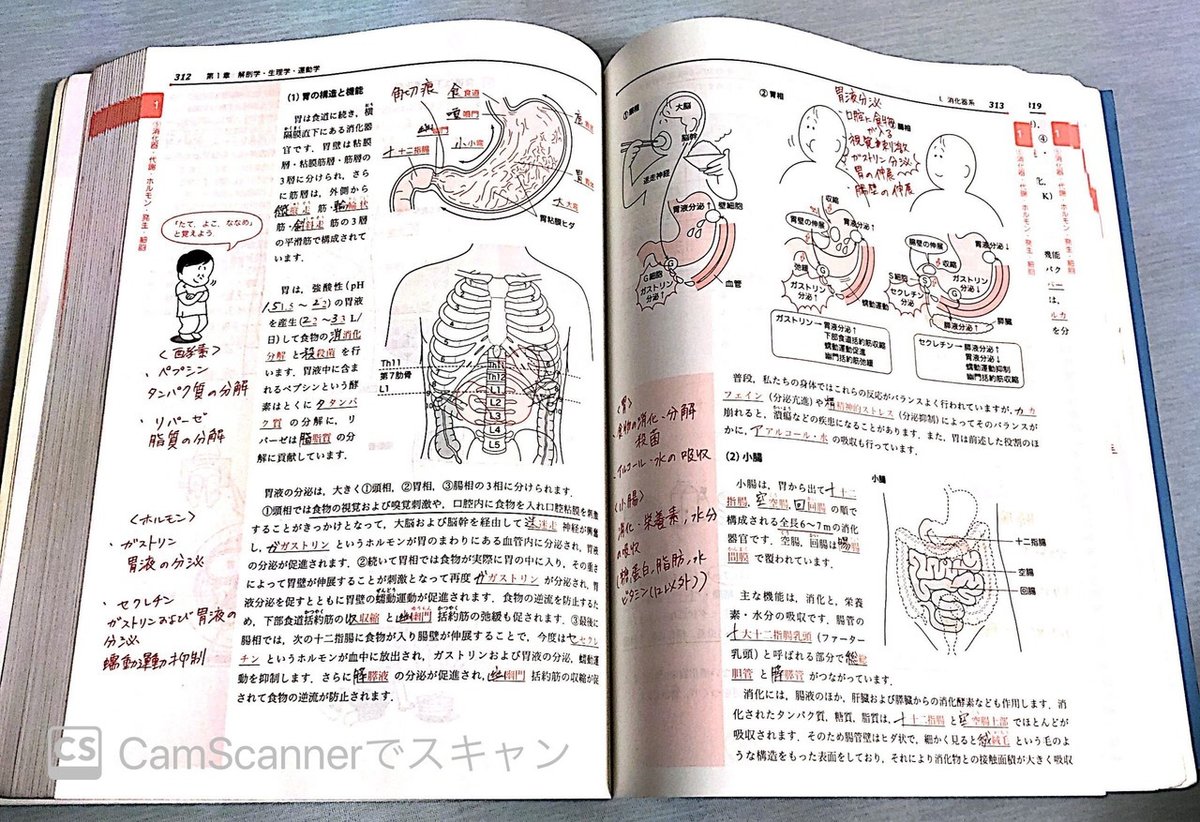 312 第1章 解剖学・生理学・運動学
1
⑤消化器・代謝・ホルモン・発生・細胞
(1) 胃の構造と機能
胃は食道に続き，横
隔膜直下にある消化器
官です．胃壁は粘膜
層・粘膜筋層・筋層の
3層に分けられ，さら
に筋層は，外側から
筋・
筋・
筋の3層
の平滑筋で構成されて
います．
「たて，よこ，ななめ」
と覚えよう
角切痕
食道
噴門
幽門
小弯
十二指腸
大弯
胃粘膜ヒダ
胃は，強酸性（pH
1.5～2）の胃液
を産生（2～3 L/
日）して食物の消化
分解と殺菌を行
います．胃液中に含ま
れるペプシンという酵
素はとくにタンパ
ク質の分解に，リ
パーゼは脂質の分
解に貢献しています．
Th11
第7肋骨
L1
Th11
Th12
L1
L2
L3
L4
L5
〈酵素〉
・ペプシン
タンパク質の分解
・リパーゼ
脂質の分解
胃液の分泌は，大きく①頭相，②胃相，③腸相の3相に分けられます．
①頭相では食物の視覚および嗅覚刺激や，口腔内に食物を入れ口腔粘膜を刺激
することがきっかけとなって，大脳および脳幹を経由して迷走神経が興奮
し，ガストリンというホルモンが胃のまわりにある血管内に分泌され，胃液
の分泌が促進されます．②続いて胃相では食物が実際に胃の中に入り，その重さ
によって胃壁が伸展することが刺激となって再度ガストリンが分泌され，胃
液分泌を促すとともに胃壁の蠕動運動が促進されます．食物の逆流を防止するた
め，下部食道括約筋の収縮と幽門括約筋の弛緩も促されます．③最後に
腸相では，次の十二指腸に食物が入り腸壁が伸展することで，今度はセクレ
チンというホルモンが血中に放出され，ガストリンおよび胃液の分泌，蠕動運
動を抑制します．さらに膵液の分泌が促進され，幽門括約筋の収縮が促
されて食物の逆流が防止されます．
〈ホルモン〉
・ガストリン
胃液の分泌
・セクレチン
ガストリンおよび胃液の
分泌
蠕動運動抑制
CS CamScannerでスキャン
L 消化器系 313
①頭相
大脳
脳幹
迷走神経
胃液分泌↑
壁細胞
G細胞
ガストリン
分泌↑
血管
②胃相
胃液分泌
口腔に食物
が入る
視覚嗅刺激
ガストリン分泌
胃の伸展
腸壁の伸展
腸相
収縮
胃壁の伸展
胃液分泌↑
弛緩
G
ガストリン
分泌↑
蠕動運動
ガストリン→胃液分泌↑
下部食道括約筋収縮
蠕動運動促進
幽門括約筋弛緩
腸壁の伸展
胃液分泌↓
収縮
S細胞
S
G
ガストリン
分泌↓
セクレチン
分泌↑
膵液分泌↑
膵臓
セクレチン→膵液分泌↑
胃液分泌↓
蠕動運動抑制
幽門括約筋収縮
普段，私たちの身体ではこれらの反応がバランスよく行われていますが，カ
フェイン（分泌亢進）や精神的ストレス（分泌抑制）によってそのバランスが
崩れると，潰瘍などの疾患になることがあります．また，胃は前述した役割のほ
かに，アルコール・水の吸収も行っています．
〈胃〉
・食物の消化・分解
殺菌
・アルコール・水の吸収
〈小腸〉
消化・栄養素，水分
の吸収
(糖，蛋白，脂肪，水
ビタミン(12以外))
(2) 小腸
小腸は，胃から出て十二
指腸，空腸，回腸の順で
構成される全長6～7mの消化
器官です．空腸，回腸は腸
間膜で覆われています．
小腸
十二指腸
空腸
回腸
主な機能は，消化と，栄養
素・水分の吸収です．腸管の
大十二指腸乳頭（ファーター
乳頭）と呼ばれる部分で総
胆管と膵管がつながっています．
消化には，腸液のほか，肝臓および膵臓からの消化酵素なども作用します．消
化されたタンパク質，糖質，脂質は，十二指腸と空腸上部でほとんどが
吸収されます．そのため腸管壁はヒダ状で，細かく見ると絨毛という毛のよ
うな構造をもった表面をしており，それにより消化物との接触面積が大きく吸収
1
⑤消化器・代謝・ホルモン・発生・細胞
319
④
ヒ，
K）
機能
パク
は，
ルカ
を分
1
⑤消化器・代謝・ホルモン・発生・細胞